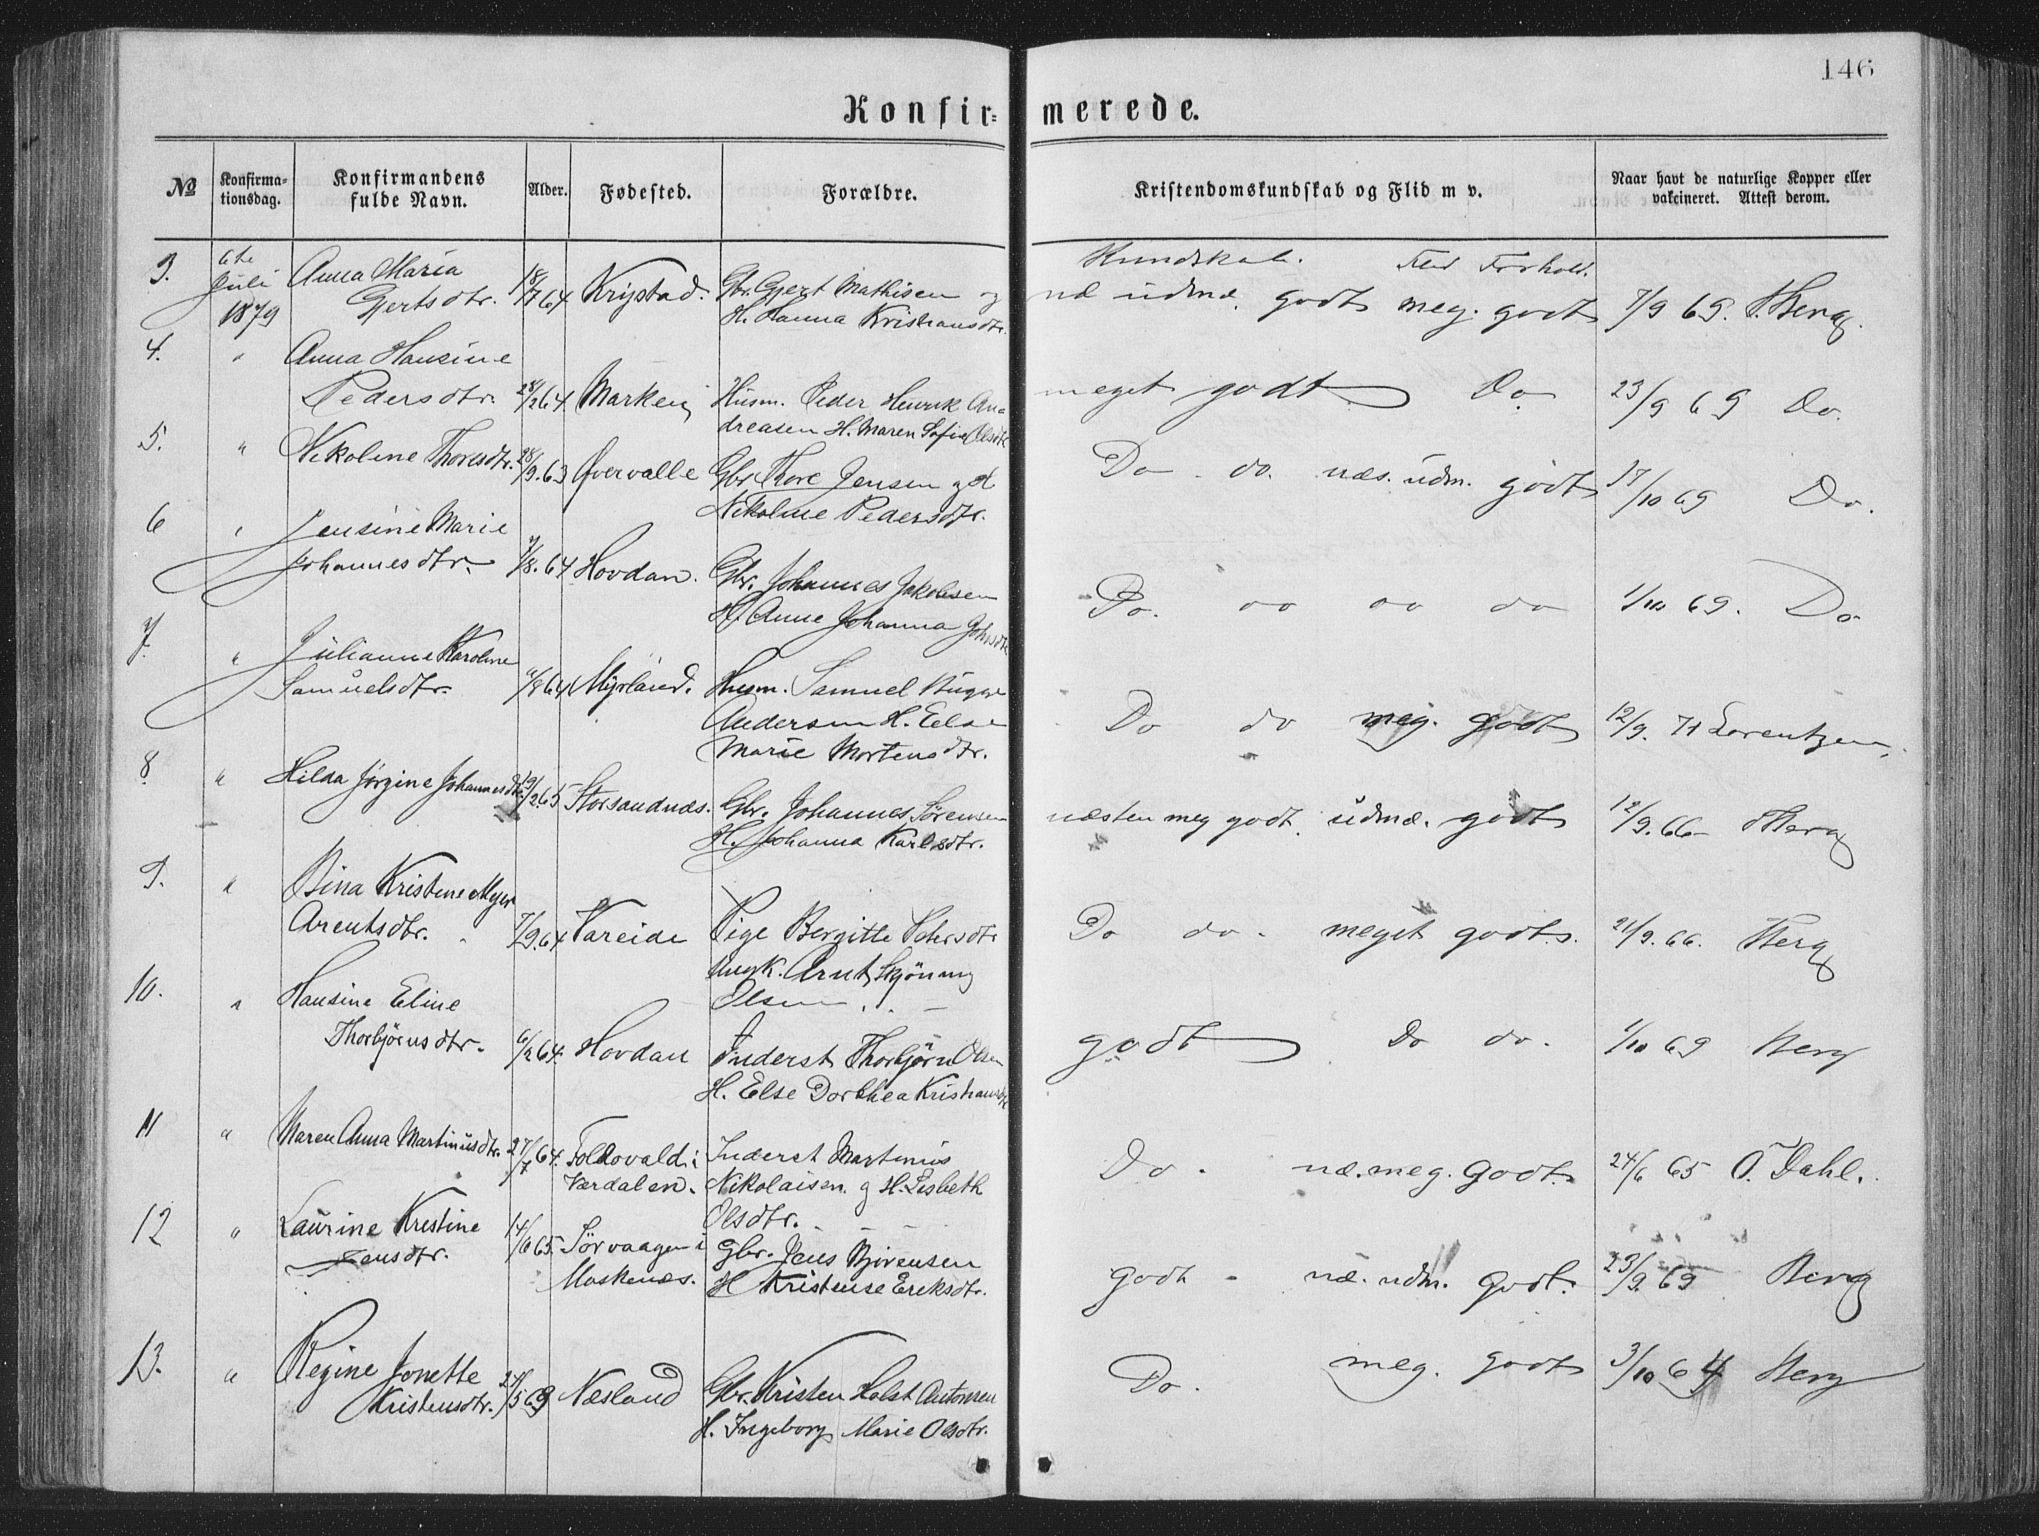 146
Konfir= merede.
No Konfirma-tionsdag. Konfirmandens fulde Navn. Alder. Fødested. Forældre. Kristendomskundskab og Flid m v. Naar havt de naturlige Kopper eller vakcineret. Attest derom.
Kundskab. Flid Forhold.
3. 6te Juli 1879 Anna Maria 18/7 64 Krystad. Gbr. Gjert Mathisen og næ udmæ. godt meg. godt 7/9 69. Berg.
Gjertsdtr. H. Hanna Kristiansdtr.
4. " Anna Hansine
Pedersdtr. 28/2 64 Marken Husm. Peder Henrik An- meget godt Do 23/9 69 Do.
dreasen H. Maren Sofie Olsdtr
5. " Nikoline Thoresdtr. 28/9. 63 Øvervalle Gbr Thore Jensen og H Do. do. næs. udm. godt 17/10 69 Do.
Nikoline Pedersdtr.
6 " Jensine Marie
Johannesdtr. 7/8. 64 Hovdan. Gbr. Johannes Jakobsen Do. do do do 1/10 69. Do
H. Anne Johanna Johnsdtr
7. " Julianne Karoline
Samuelsdtr. /8 64 Myrland. Husm. Samuel
Andersen H. Else Do do meg. godt 12/9. 71 Lorentzen.
Marie Mortensdtr.
8. " Hilda Jørgine Johannesdtr. 19/2. 65 Storsandnæs. Gbr. Johannes Sørensen næsten meg godt. udmæ. godt 12/9. 66 Berg
H. Johanna Karlsdtr.
9. " Bina Kristine Meyer
Arentsdtr. 7/9. 64 Vareide Pige Bergitte Pehrsdtr Do do. meget godt. 21/9. 66. Berg
Ungk. Arnt Skjøning
Olsen
10. " Hansine Eline
Thorbjørnsdtr. 6/2 64. Hovdan Inderst Thorbjørn Olsen godt Do do. 1/10 69 Berg
H. Else Dorthea Kristiansdtr
11 " Maren Anna Martinusdtr. 27/7 64. Foldovald i Inderst Martinus Do. næ. meg. Godt. 24/6 65 O. Dahl.
Værdalen. Nikolaisen og H. Lisbeth
Olsdtr.
12 " Laurine Krestine 14/6 65. Sørvaagen i Gbr. Jens Bjørensen godt næ. udm. Godt. 23/9. 69 Berg
Jensdtr. Moskenæs. H Kristense Ereksdtr.
13. " Regine Jonette
Kristensdtr. 21/5 63 Næsland Gbr. Kristen Holst Antonsen Do. meg. godt 3/10 64 Berg
H. Ingeborg Marie Olsdtr.